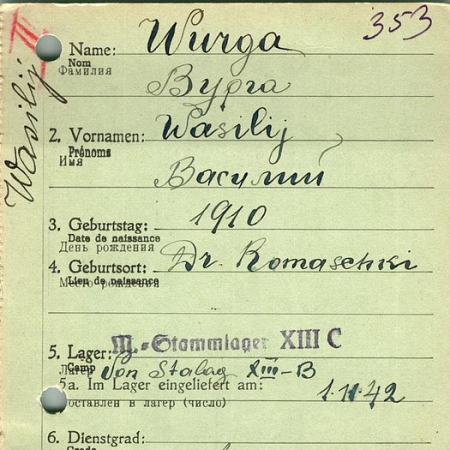 353
Name: Wurga
Nom
Фамилия
Вурга
Wasilij
2. Vornamen: Wasilij
Prénoms
Имя
Василий
3. Geburtstag: 1910
Date de naissance
День рождения
4. Geburtsort: Dr. Romaschki
Lieu de naissance
Место рождения
5. Lager: M.-Stammlager XIII C
Camp
Лагерь von Stalag XIII-B
5a. Im Lager eingeliefert am: 1.11.42
Доставлен в лагер (число)
6. Dienstgrad:
Grade